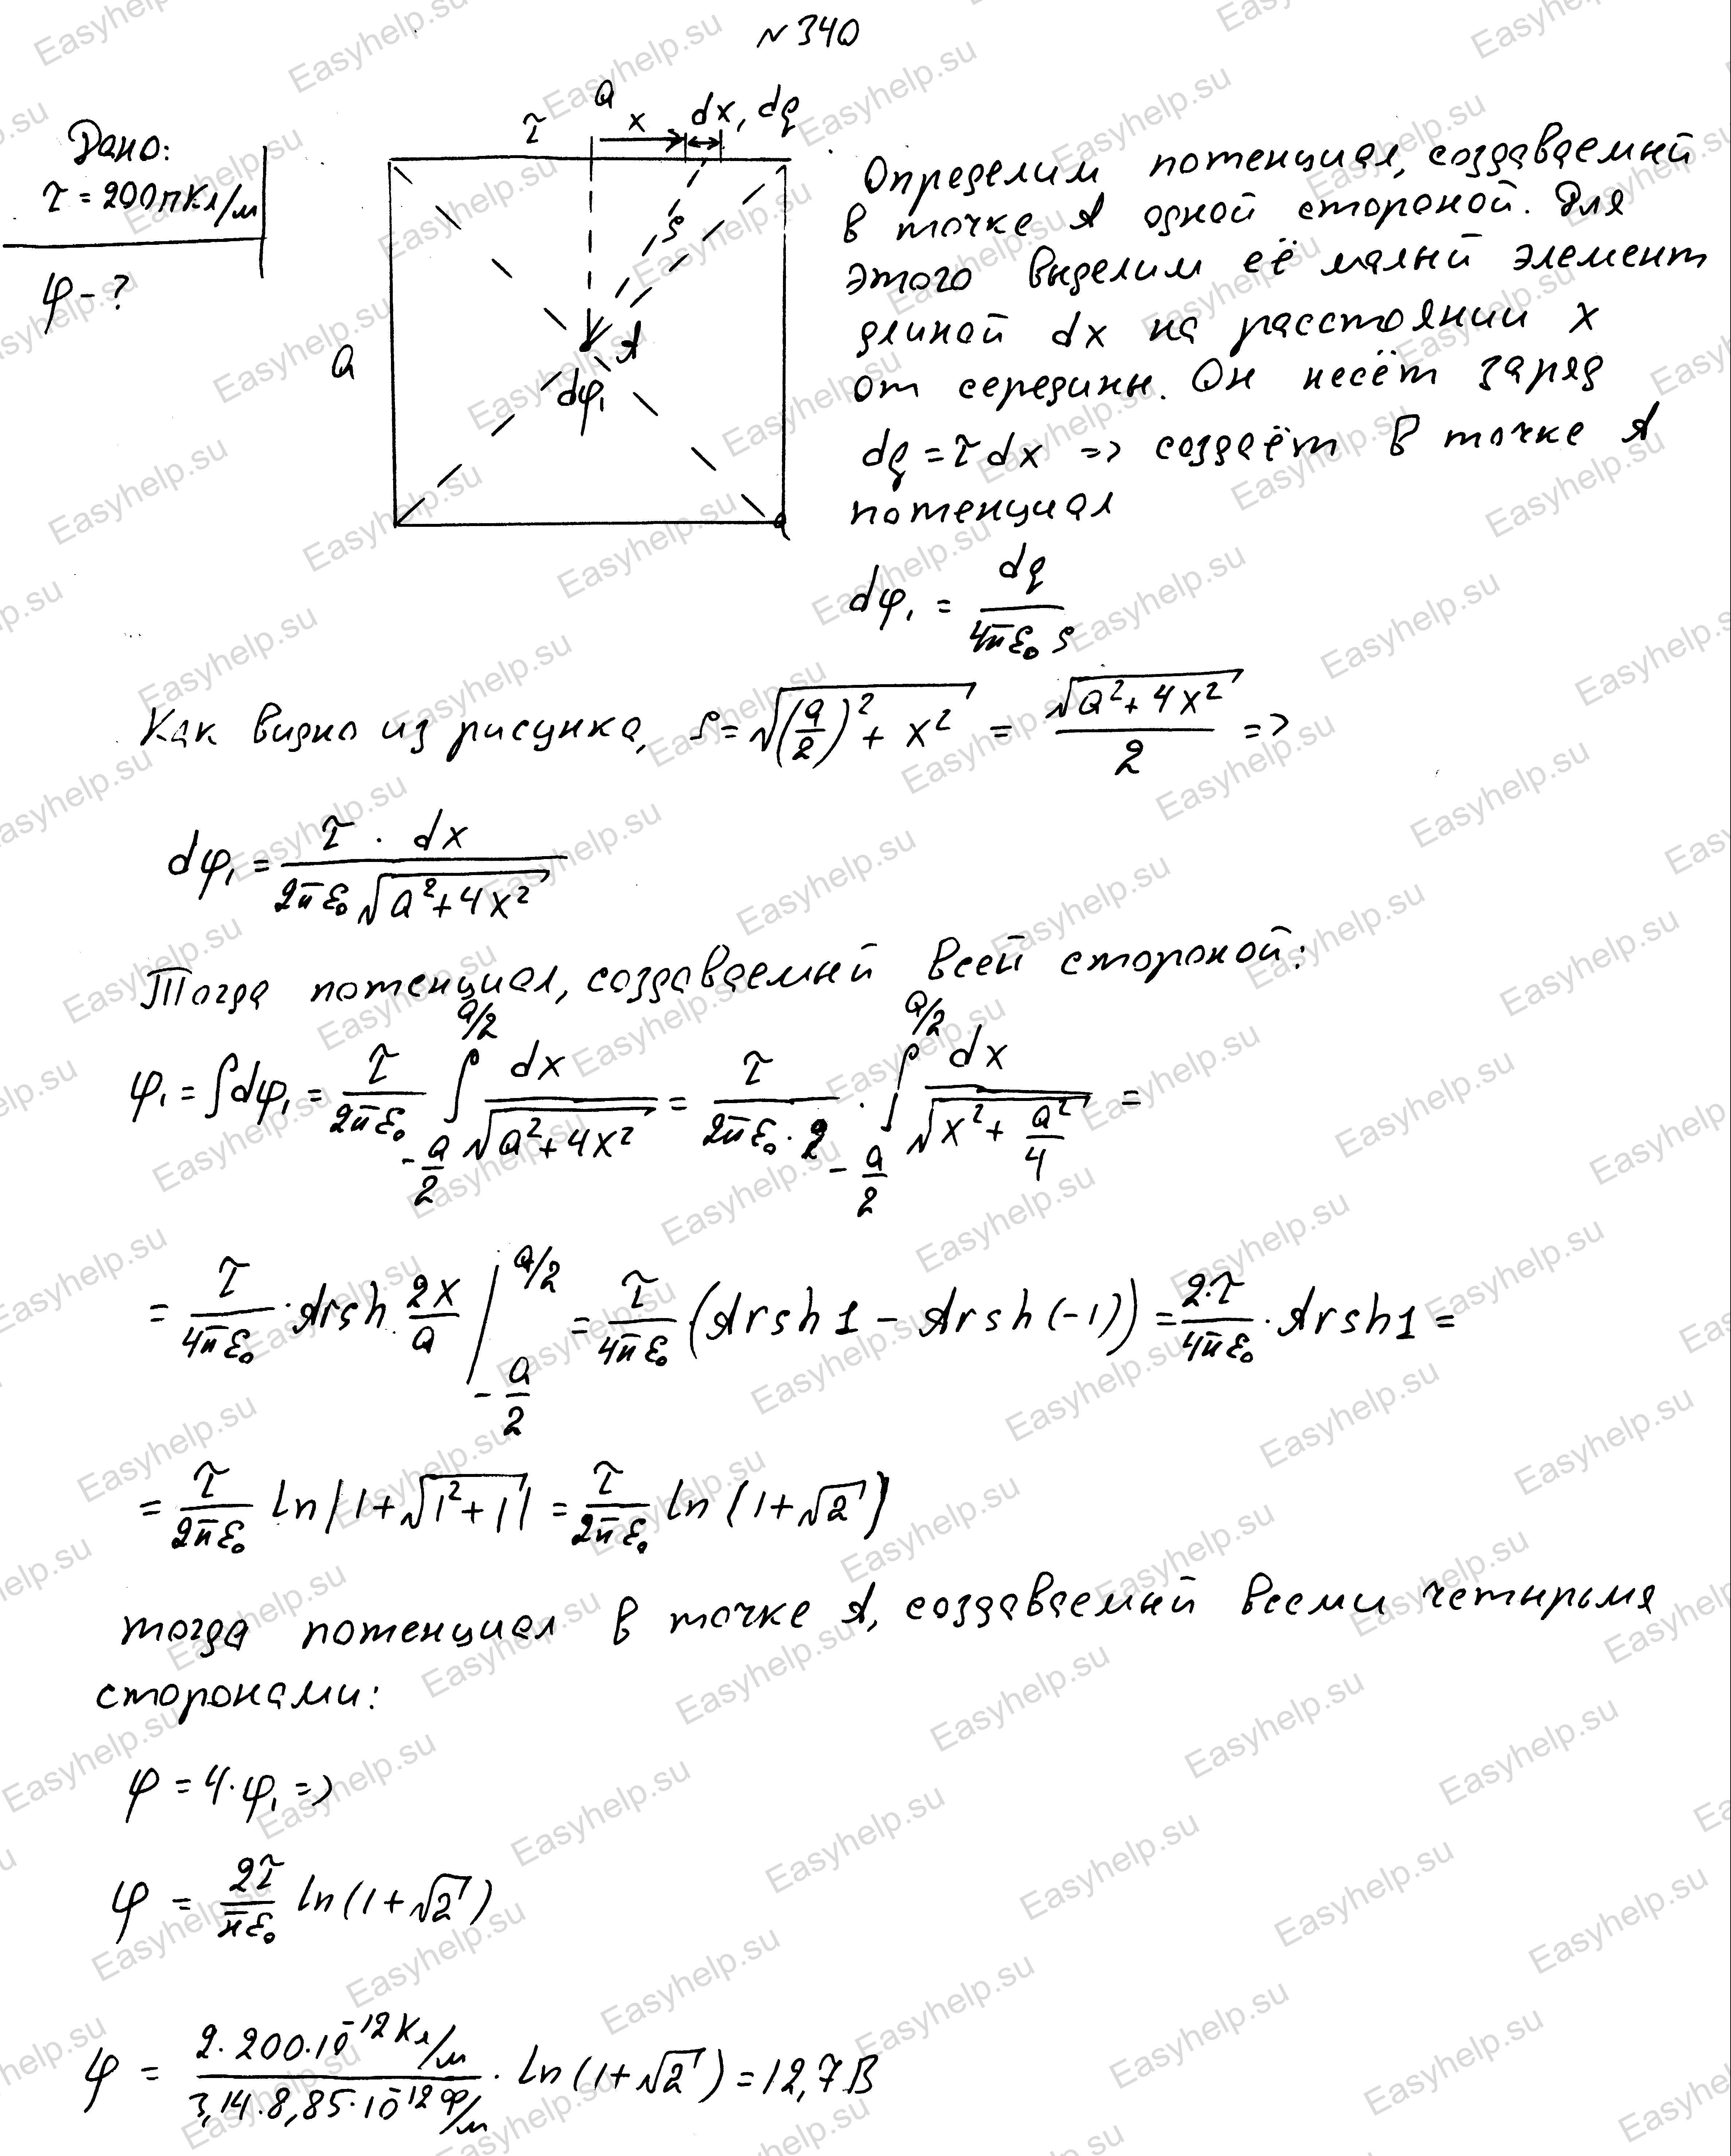 № 340
Дано:
τ = 200 пКл/м
φ - ?
a
τ
x
dx, dq
ρ
A
dφ₁
a
Определим потенциал, создаваемый
в точке A одной стороной. Для
этого выделим её малый элемент
длиной dx на расстоянии x
от середины. Он несёт заряд
dq = τ dx => создаёт в точке A
потенциал
dφ₁ = dq / (4πε₀ρ)
Как видно из рисунка, ρ = √((a/2)² + x²) = √(a² + 4x²) / 2 =>
dφ₁ = τ · dx / (2πε₀√(a² + 4x²))
Тогда потенциал, создаваемый всей стороной:
φ₁ = ∫dφ₁ = τ/(2πε₀) ∫_{-a/2}^{a/2} dx/√(a² + 4x²) = τ/(2πε₀·2) · ∫_{-a/2}^{a/2} dx/√(x² + a²/4) =
= τ/(4πε₀) · Arsh 2x/a |_{-a/2}^{a/2} = τ/(4πε₀) (Arsh 1 - Arsh (-1)) = 2·τ/(4πε₀) · Arsh 1 =
= τ/(2πε₀) ln|1 + √(1² + 1)| = τ/(2πε₀) ln (1 + √2)
тогда потенциал в точке A, создаваемый всеми четырьмя
сторонами:
φ = 4·φ₁ =>
φ = 2τ/(πε₀) ln (1 + √2)
φ = 2·200·10⁻¹² Кл/м / (3,14·8,85·10⁻¹² Ф/м) · ln (1 + √2) = 12,7 В
Easyhelp.su